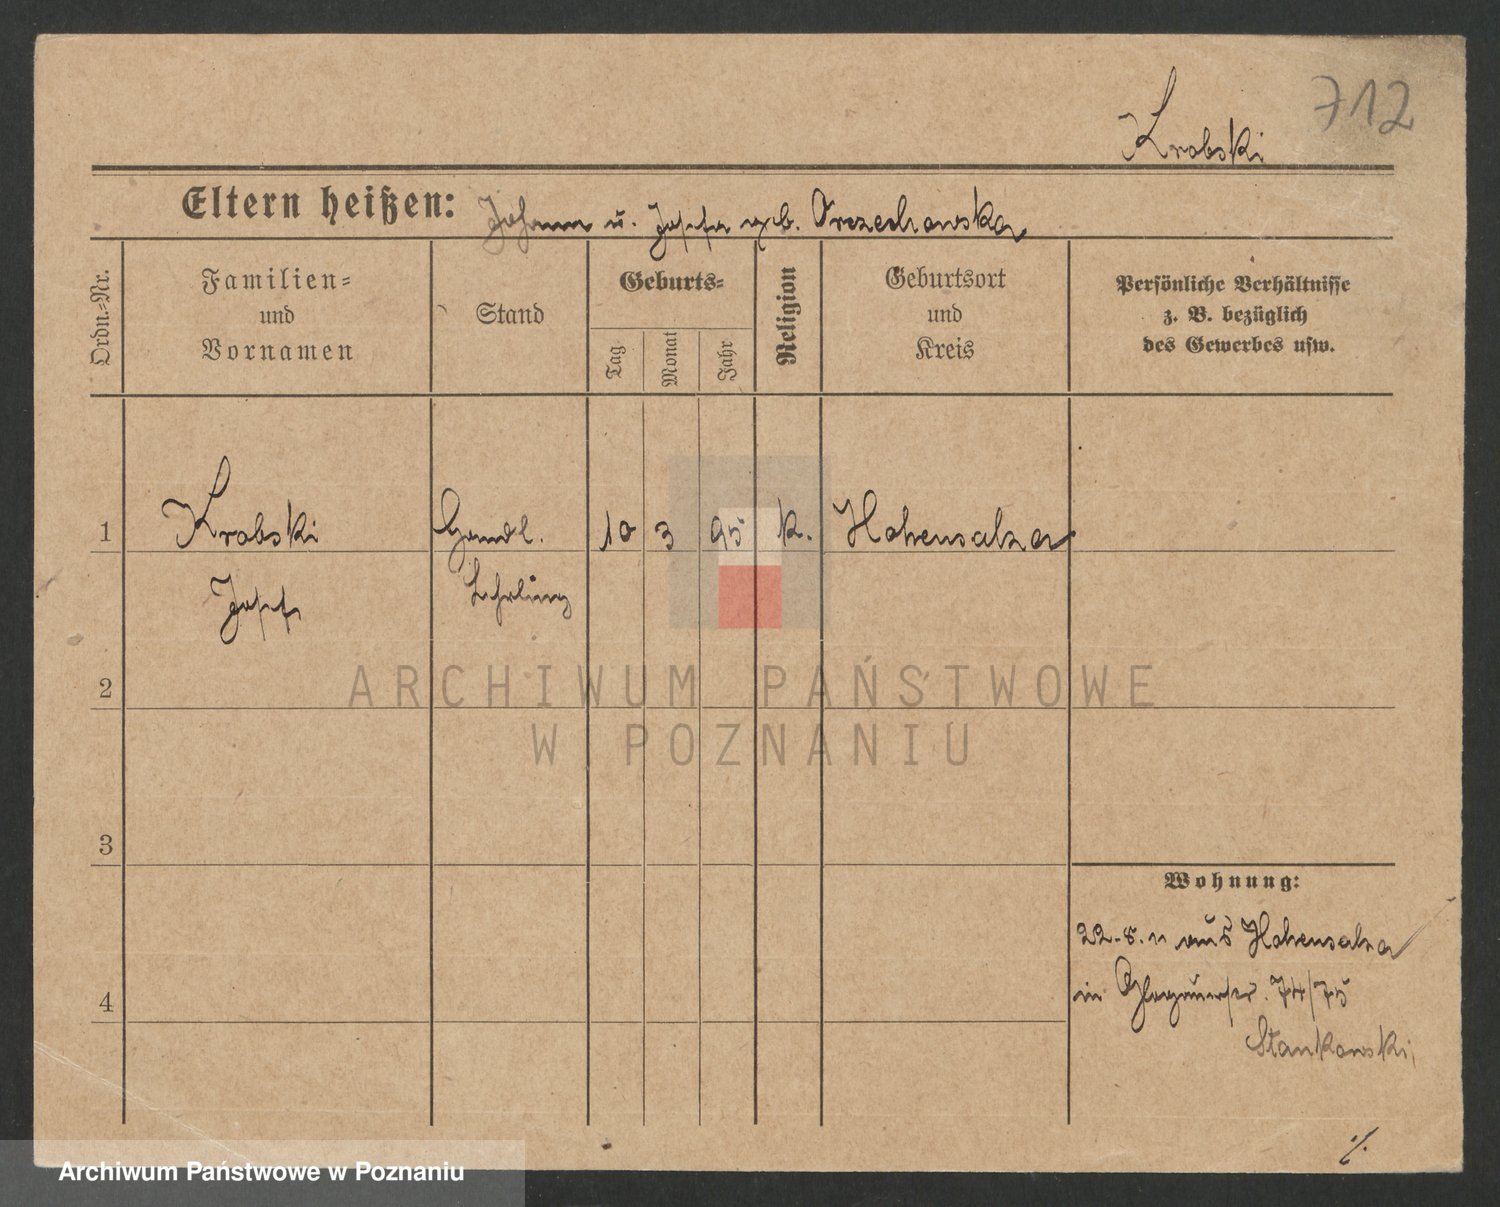 712
Krobski
Eltern heißen: Johann u. Josefa geb. Orzechowska
Ordn.-Nr.
Familien-
und
Vornamen
Stand
Geburts-
Tag
Monat
Jahr
Religion
Geburtsort
und
Kreis
Persönliche Verhältnisse
z. B. bezüglich
des Gewerbes usw.
1 Krobski Handl. 10 3 95 k. Hohensalza
Josef Lehrling
2
3
4
Wohnung:
22.8.11 aus Hohensalza
in Glogauerstr. 74/75
Stankowski
ARCHIWUM PAŃSTWOWE
W POZNANIU
Archiwum Państwowe w Poznaniu